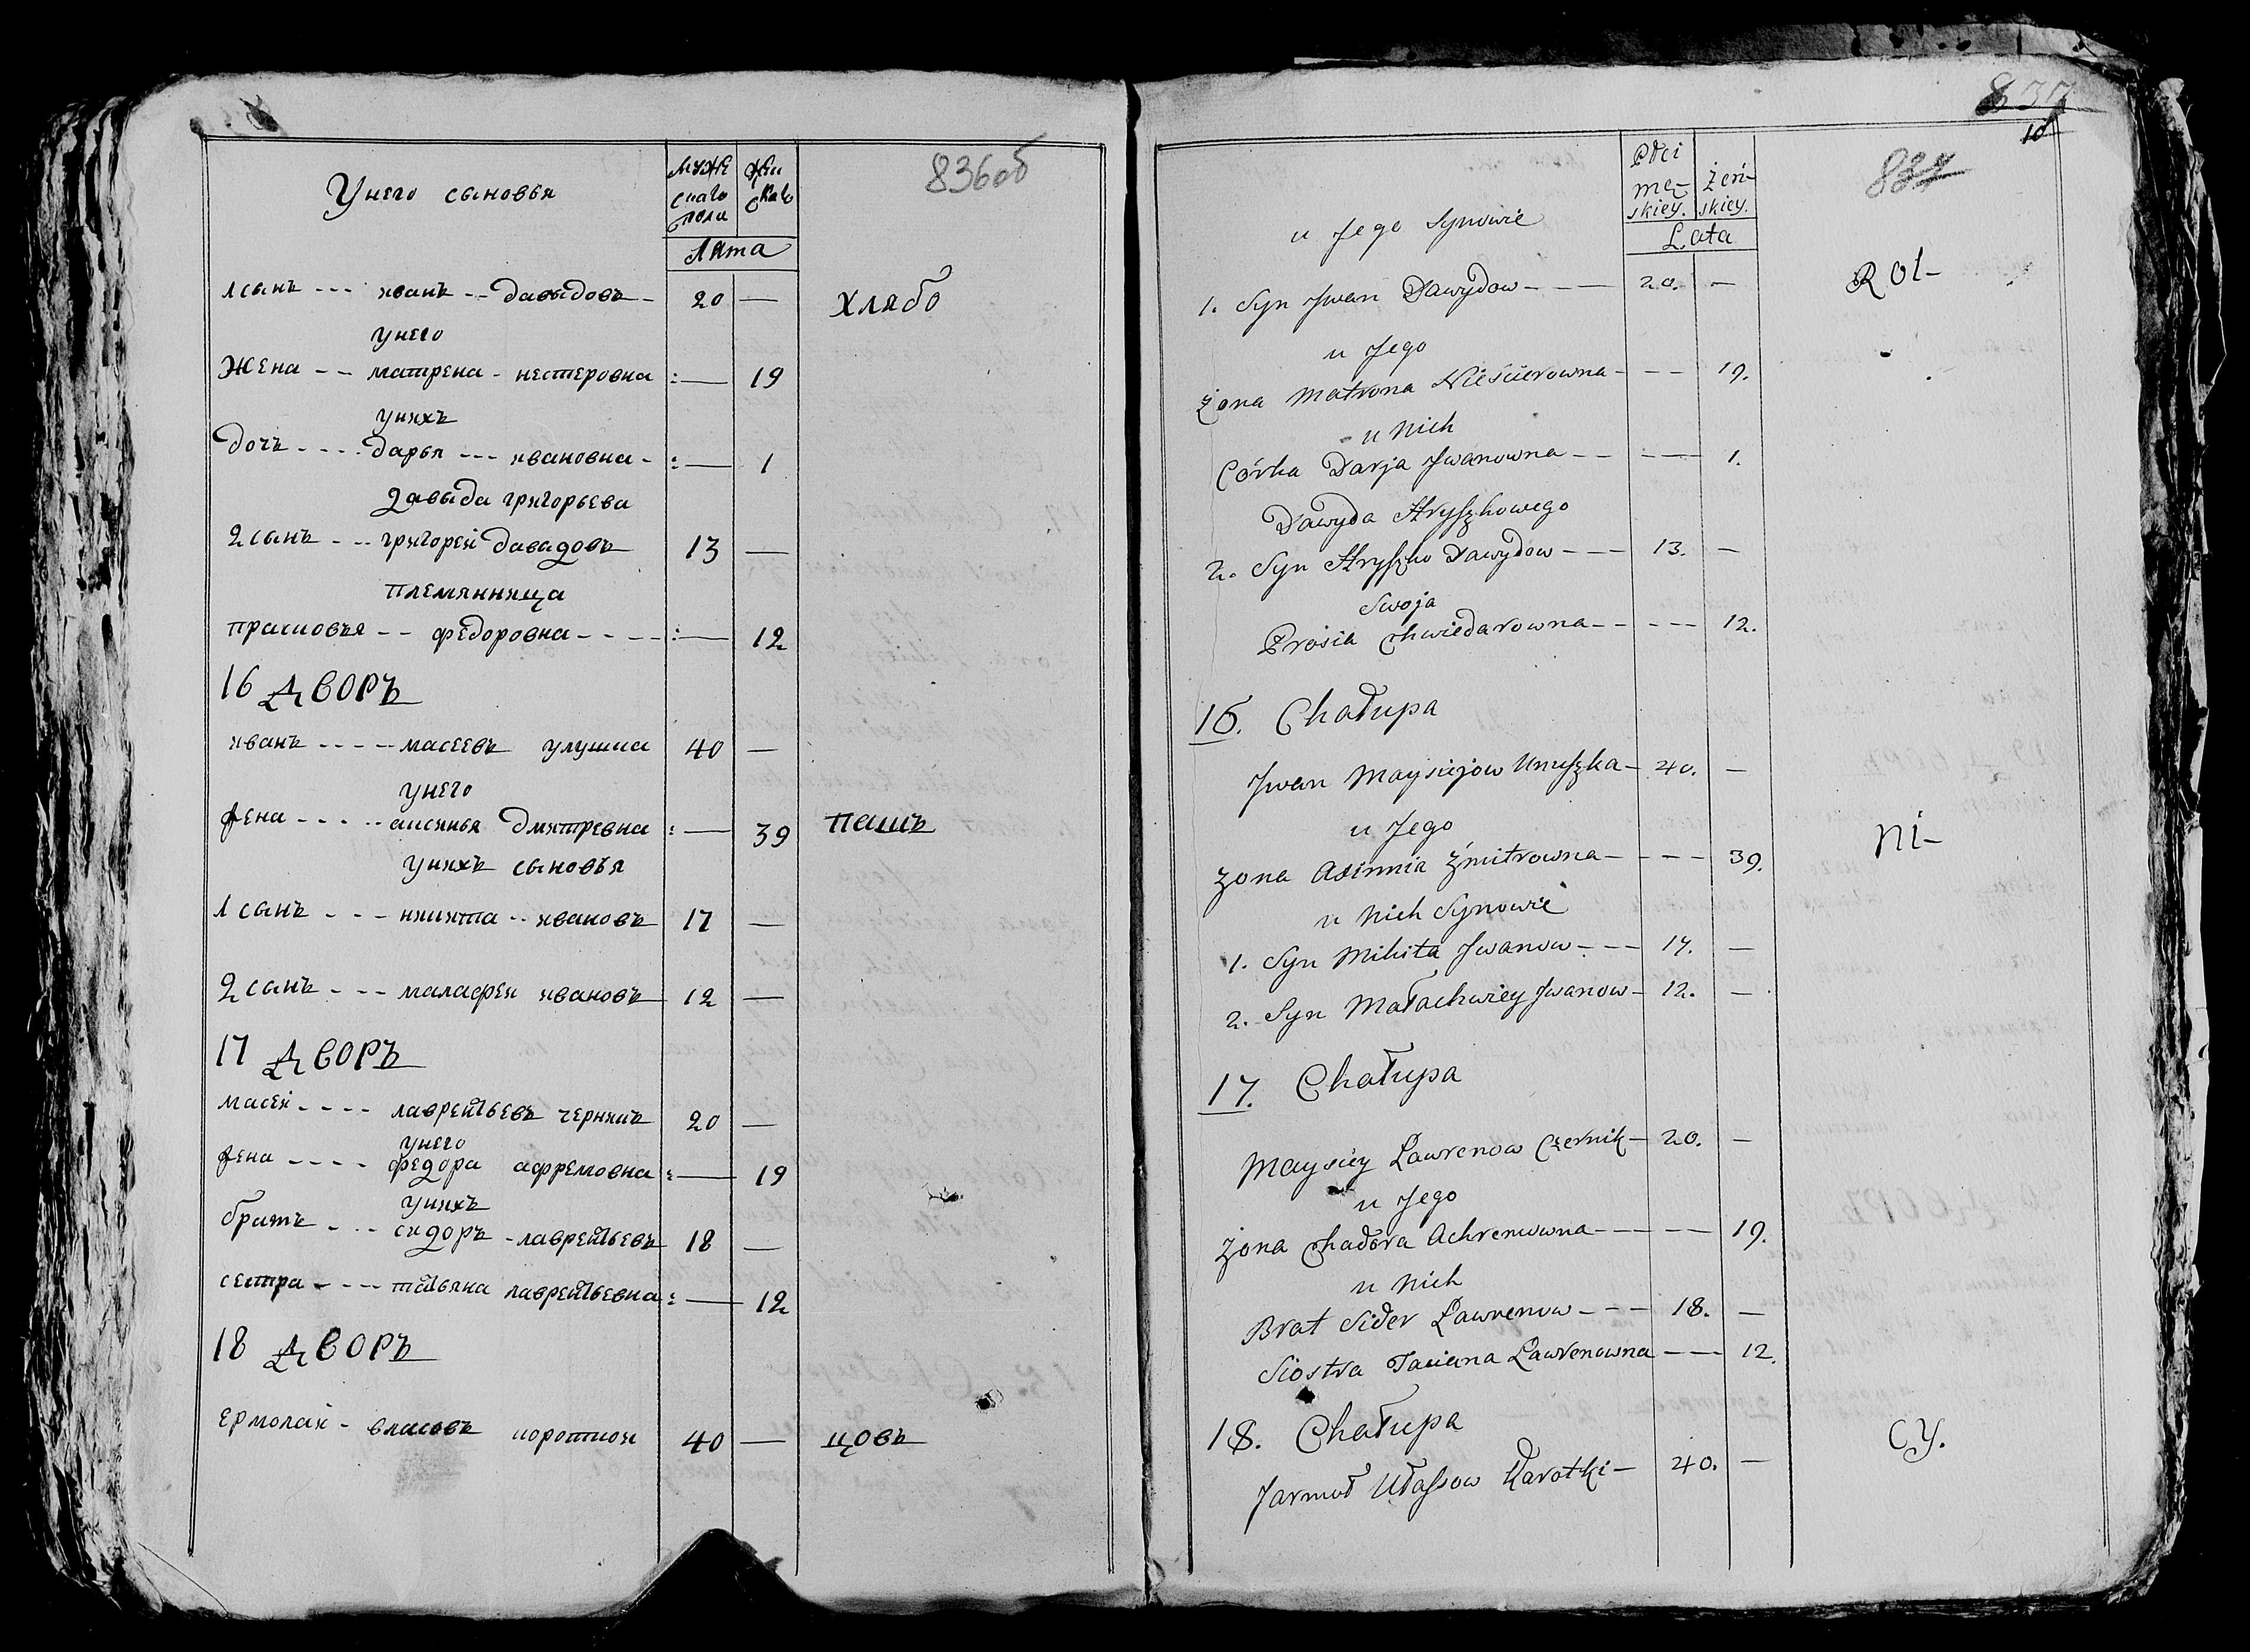 836об
Унего сыновья
муже
скаго
пола
Жен
скаго
Лята
1 сынъ --- яванъ -- давыдовъ - 20 —
хлябо
унего
Жена -- матрена - нестеровна :— 19
уняхъ
дочъ ---- дарья --- явановна - :— 1
давыда григорьева
2 сынъ --- григорей давадовъ 13 —
племянняца
прасковья -- федоровна ---- :— 12
16 дворъ
яванъ ----- масеевъ улушка 40 —
унего
жена ----- аксинья дмятревна :— 39
пашъ
уняхъ сыновья
1 сынъ --- някята -- явановъ 17 —
2 сынъ --- малафея явановъ 12 —
17 дворъ
масея ---- лаврентьевъ черникъ 20 —
унего
жена ---- федора афремовна :— 19
уняхъ
братъ --- сидоръ - лаврентьевъ 18 —
сестра ---- татьяна лаврентьевна :— 12
18 дворъ
ермолай - власовъ короткоя 40 —
цовъ
837
10
837
Płci
mę-
skiey.
żeń-
skiey.
Lata
u Jego Synowie
1. Syn Jwan Dawydow --- 20. —
Rol-
u Jego
żona Matrona Nieścierowna --- 19.
u Nich
Córka Darja Jwanowna ---- 1.
Dawyda Hryszkowego
2. Syn Hryszko Dawydow --- 13. —
Swoja
Prosia Chwiedarowna ----- 12.
16. Chałupa
Jwan Maysiejow Unuszka - 40. —
u Jego
żona Axinnia Zmitrowna ---- 39.
Ni-
u Nich Synowie
1. Syn Mikita Jwanow --- 17. —
2. Syn Małachwiey Jwanow - 12. —
17. Chałupa
Maysiey Lawrenow Czernik - 20. —
u Jego
żona Chadora Achremowna ---- 19.
u Nich
Brat Sider Lawrenow --- 18. —
Siostra Taciana Lawrenowna --- 12.
18. Chałupa
Jarmoł Ułassow Karotki - 40. —
cy.